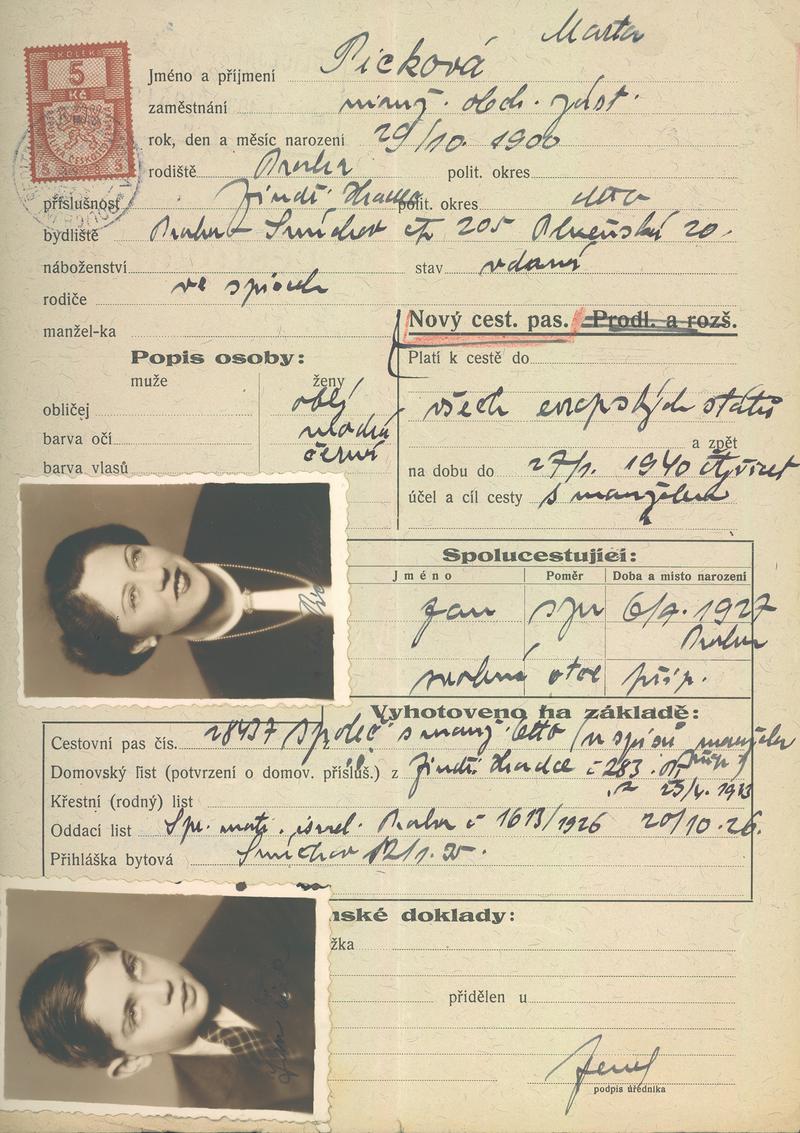 Marta
KOLEK
5
Kč
Jméno a příjmení Picková
zaměstnání obch.
rok, den a měsíc narození 29/10. 1900
rodiště Praha polit. okres
příslušnost Jindř. Hradec polit. okres detto
bydliště Praha Smíchov čp 205 Plzeňská 20.
náboženství stav vdaná
rodiče ve spisech
manžel-ka
Nový cest. pas. Prodl. a rozš.
Popis osoby:
Platí k cestě do
muže ženy
obličej oblý
všech evropských států
barva očí modrá
a zpět
barva vlasů černá
na dobu do 27/1. 1940
účel a cíl cesty s manželem
Spolucestující:
Jméno Poměr Doba a místo narození
Jan syn 6/9. 1927
Praha
otce příp.
Vyhotoveno na základě:
Cestovní pas čís. 28437 detto
Domovský list (potvrzení o domov. přísluš.) z Jindř. Hradce č 283
Křestní (rodný) list
Oddací list israel. Praha č 1613/1926 20/10. 26.
Přihláška bytová Smíchov
nské doklady:
žka
přidělen u
podpis úředníka